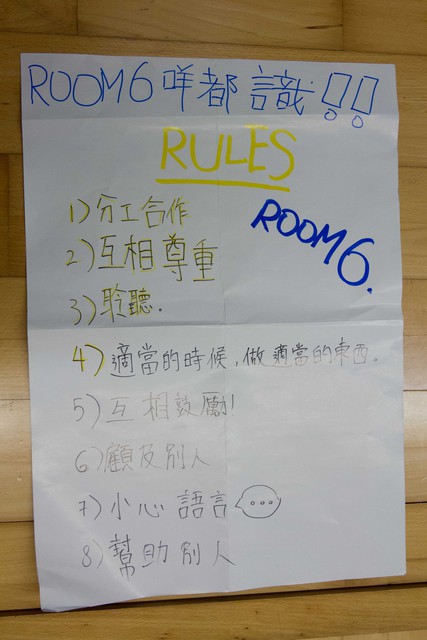 ROOM 6 咩都識!!
RULES
ROOM 6.
1) 分工合作
2) 互相尊重
3) 聆聽.
4) 適當的時候,做適當的東西。
5) 互相鼓勵!
6) 顧及別人
7) 小心語言 ...
8) 幫助別人